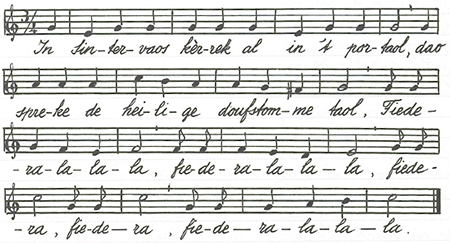 In sin-ter-vaos kèr-rek al in 't por-taol, dao
spre-ke de hei-li-ge doufstom-me taol, Fiede-
-ra-la-la-la, fie-de-ra-la-la-la, fiede-
-ra, fie-de-ra, fie-de-ra-la-la-la.